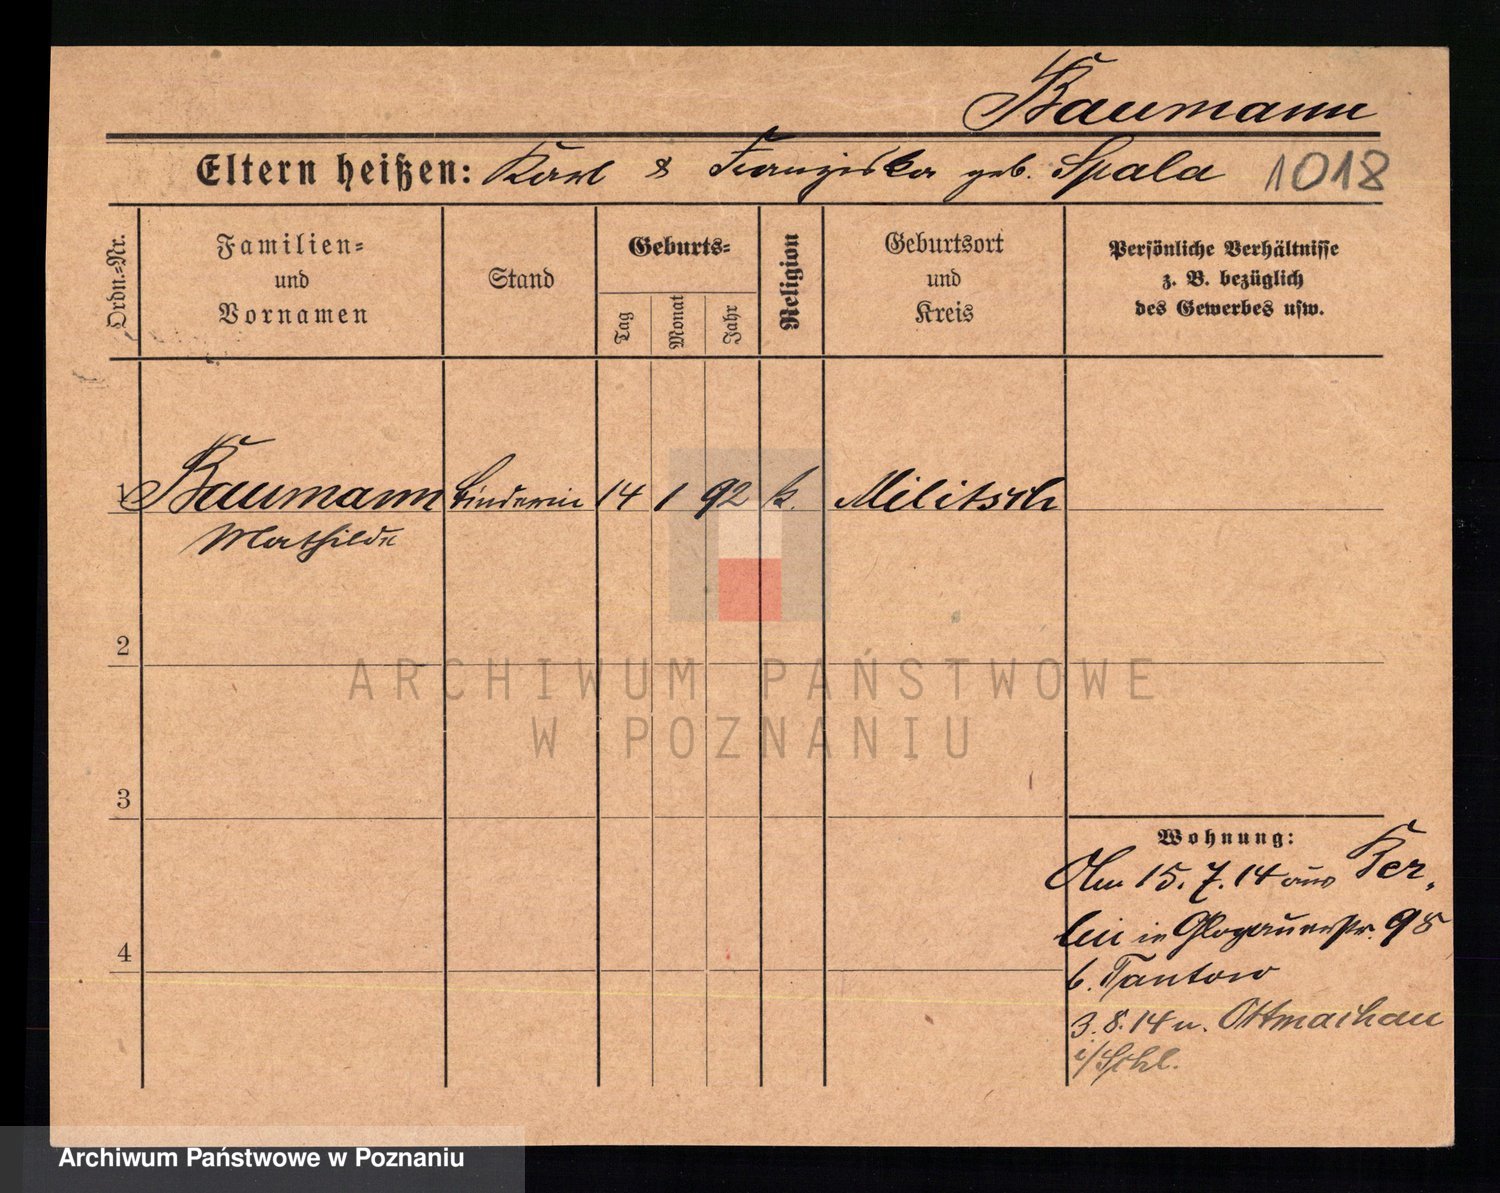 Baumann
Eltern heißen: Karl & Franziska geb. Spala 1018
Ordn.-Nr.
Familien-
und
Vornamen
Stand
Geburts-
Tag
Monat
Jahr
Religion
Geburtsort
und
Kreis
Persönliche Verhältnisse
z. B. bezüglich
des Gewerbes usw.
1 Baumann Binderin 14 1 92 k. Militsch
Mathilde
2
3
4
Wohnung:
Am 15.7.14 aus Ber-
lin in Glogauerstr. 98
b. Tantow
3.8.14 n. Ottmachau
i/Schl.
ARCHIWUM PAŃSTWOWE
W POZNANIU
Archiwum Państwowe w Poznaniu